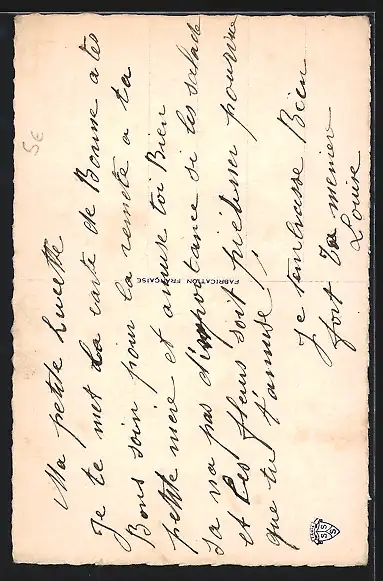 Ma petite Lucette
Je te met ta carte de Bonne a tes
Bons soin pour la remete a ta
petite mère et amuse toi Bien
sa na pas d'importance si les salade
et les fleurs sont piétiner pourvue
que tu t'amuse !
Je t'embrasse Bien
fort Ta memier
Louise
FABRICATION FRANÇAISE
5€